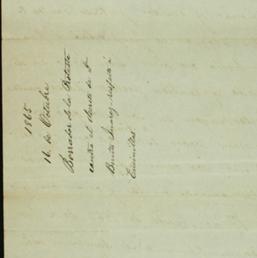 1865
16 de Octubre
Borrador de la Protesta
contra el decreto de D.
Benito Juarez respecto á